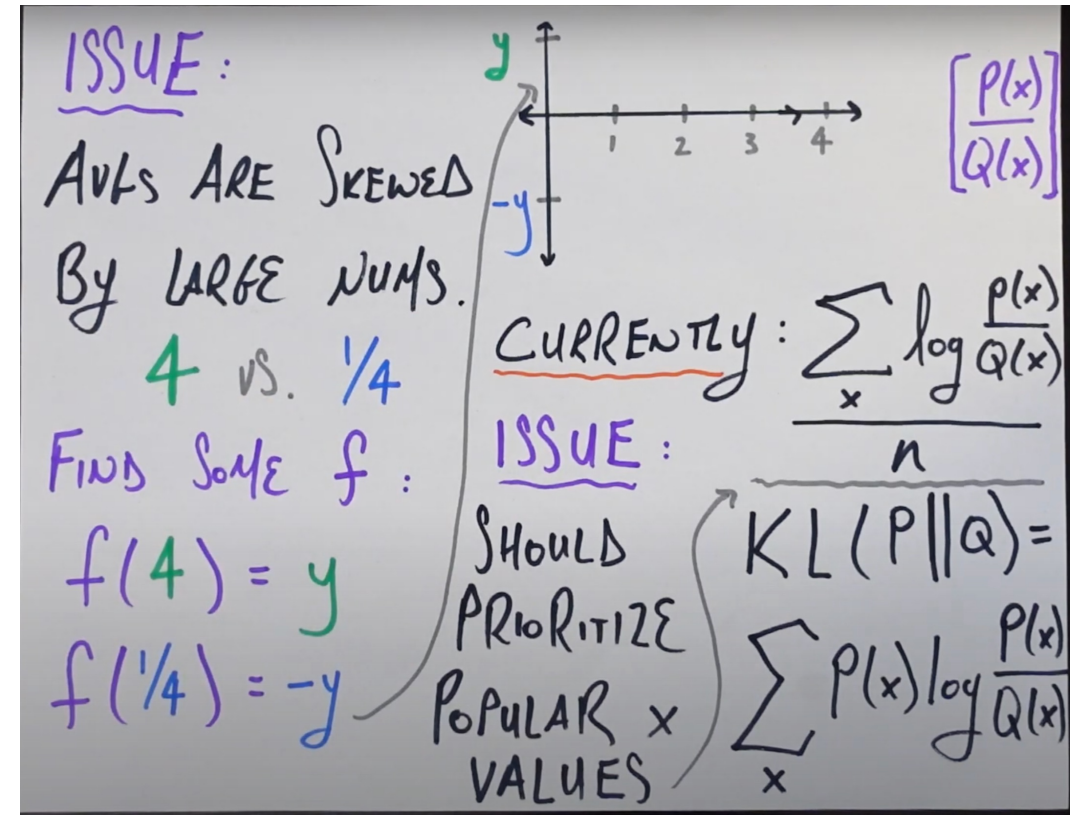 ISSUE:
AVGS ARE SKEWED
BY LARGE NUMS.
4 vs. 1/4
FIND SOME f:
f(4) = y
f(1/4) = -y
y
1 2 3 4
-y
[P(x)/Q(x)]
CURRENTLY: ∑x log P(x)/Q(x)
n
ISSUE:
SHOULD
PRIORITIZE
POPULAR x
VALUES
KL(P||Q)=
∑x P(x) log P(x)/Q(x)